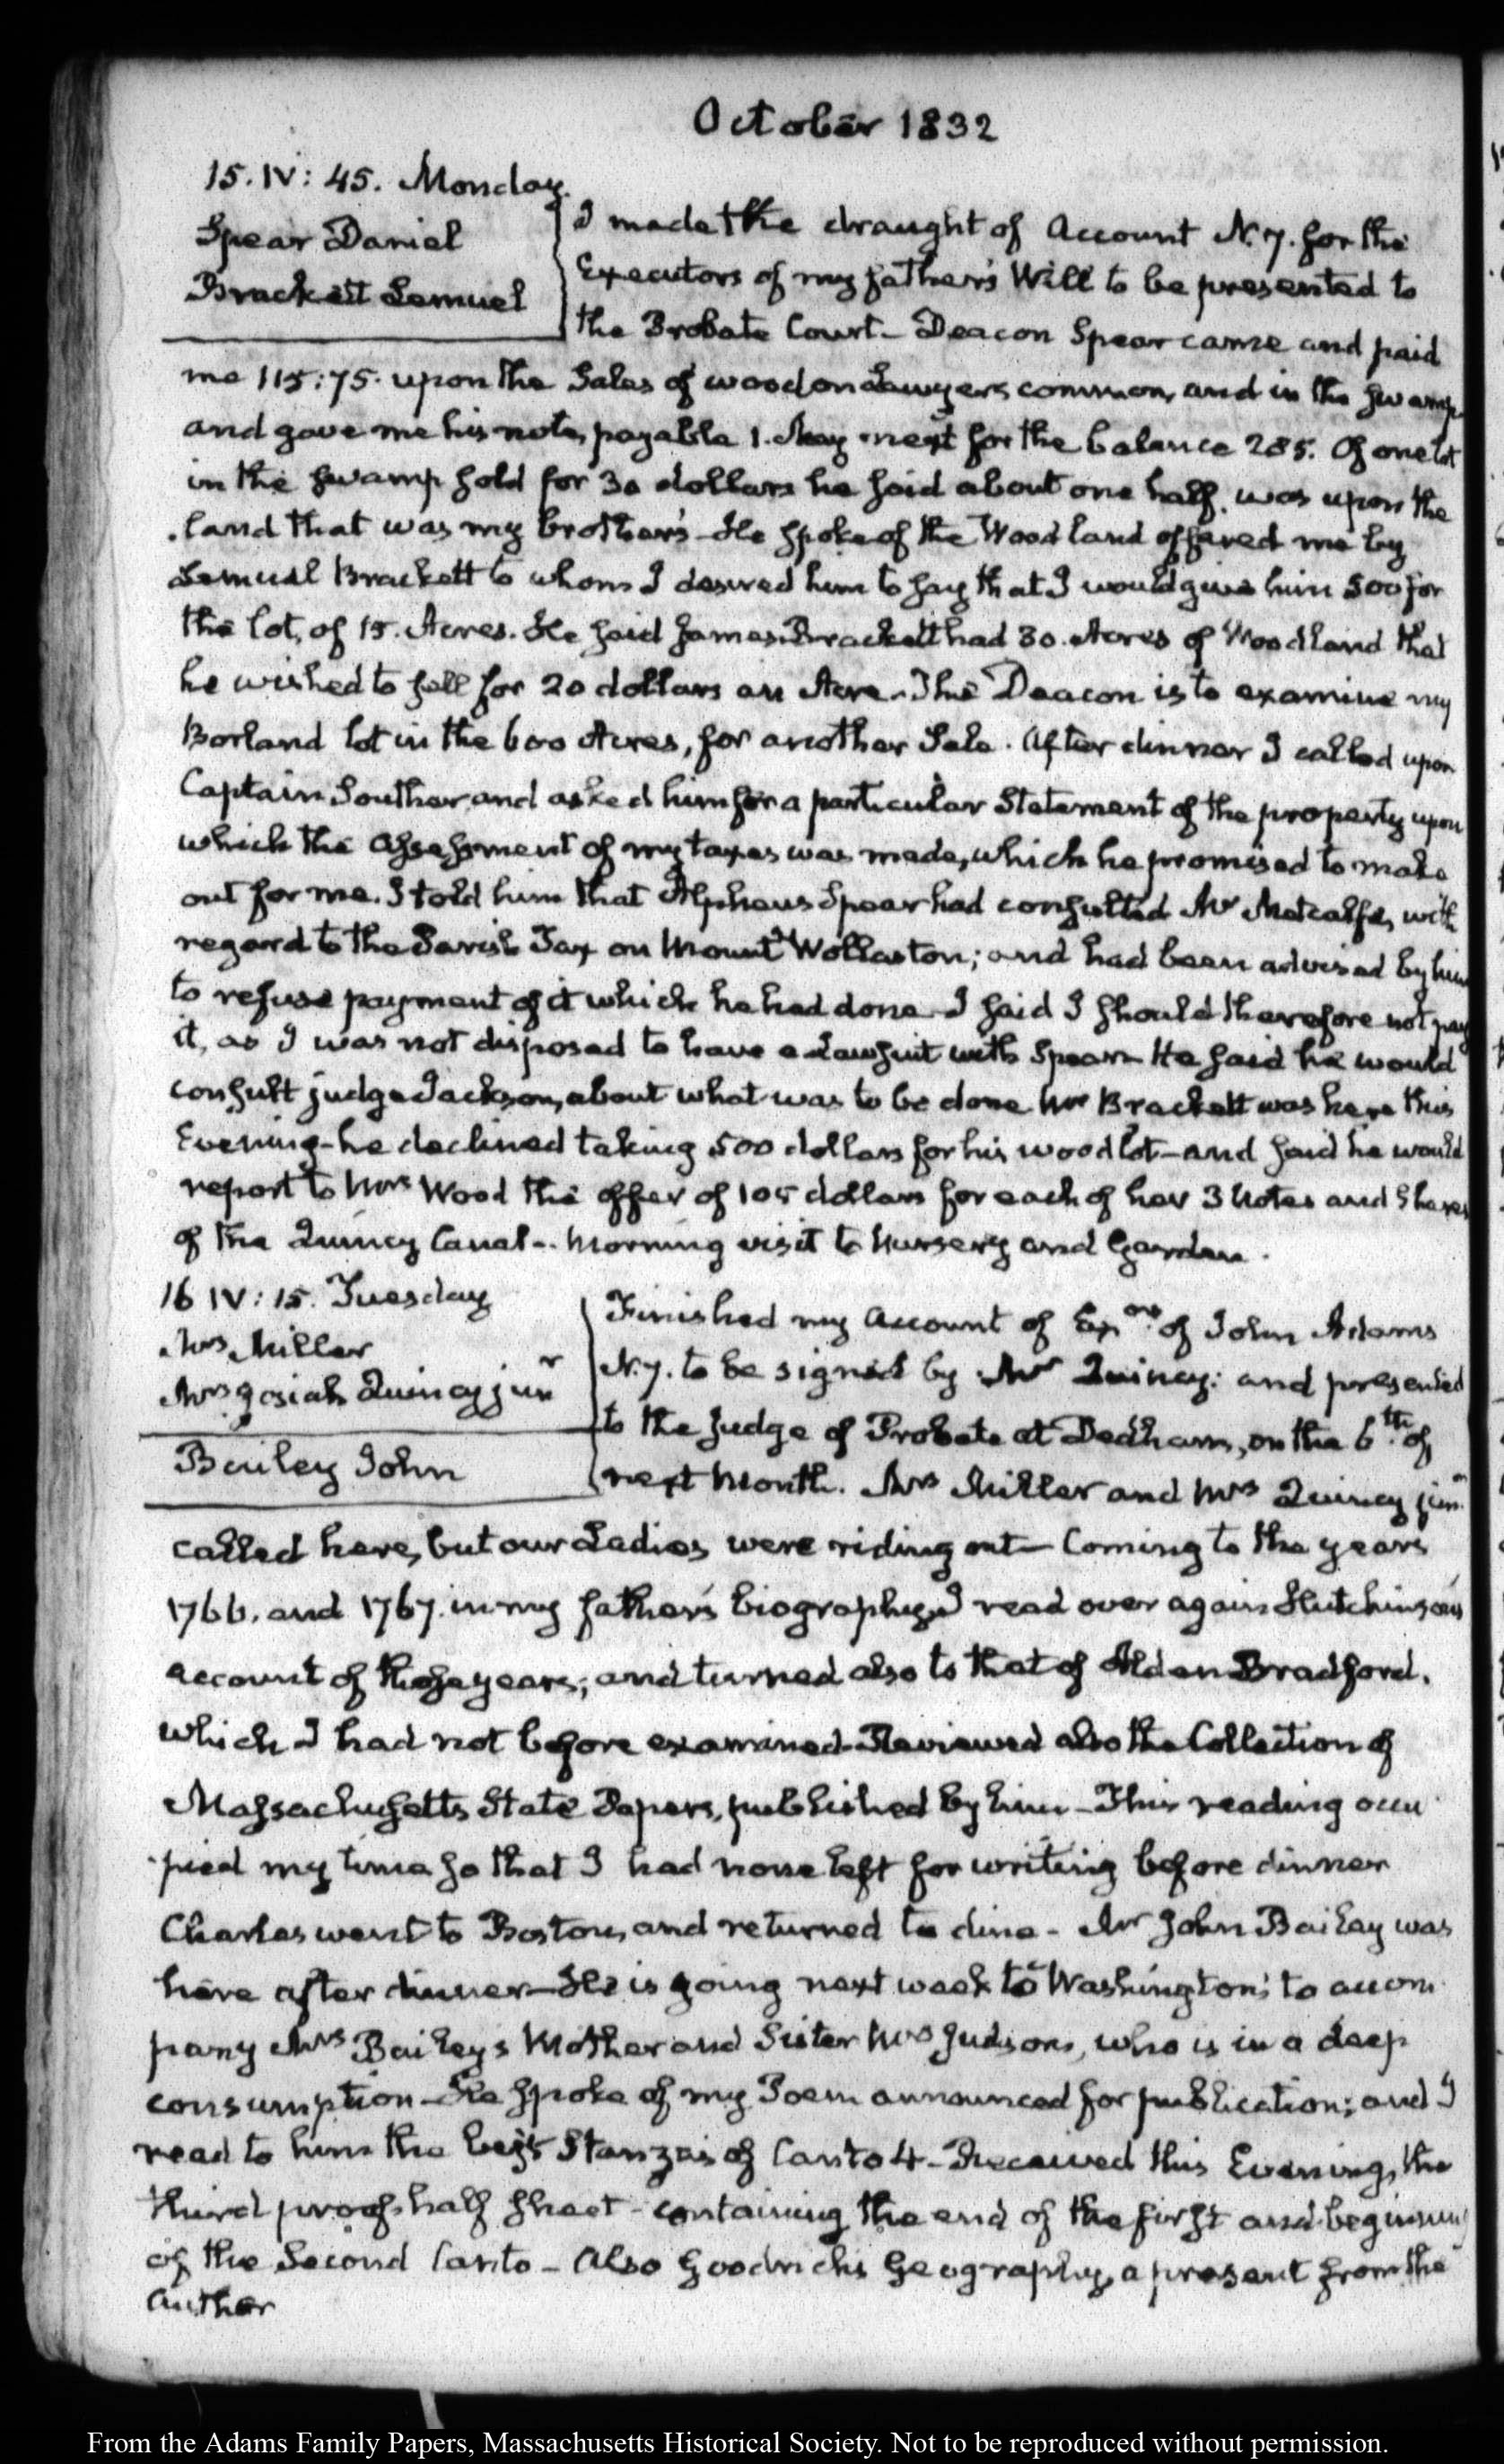 October 1832
15. IV: 45. Monday.
Spear Daniel
Brackett Lemuel
I made the draught of Account N. 7. for the
Executors of my father's Will to be presented to
the Probate Court — Deacon Spear came and paid
me 115:75. upon the Sales of wood on Sawyers common, and in the Swamp
and gave me his note, payable 1. May next for the balance 285. Of one lot
in the Swamp sold for 30 dollars he said about one half was upon the
land that was my brother's — He spoke of the Woodland offered me by
Lemuel Brackett to whom I desired him to say that I would give him 500 for
the lot, of 15. Acres. He said James Brackett had 30. Acres of Woodland that
he wished to sell for 20 dollars an Acre — The Deacon is to examine my
Borland lot in the 600 Acres, for another Sale. After dinner I called upon
Captain Souther and asked him for a particular Statement of the property upon
which the Assessment of my taxes was made, which he promised to make
out for me. I told him that Alpheus Spear had consulted Mr Metcalfe, with
regard to the Parish Tax on Mount Wollaston; and had been advised by him
to refuse payment of it which he had done — I said I should therefore not pay
it, as I was not disposed to have a Lawsuit with Spear — He said he would
consult judge Jackson, about what was to be done Mr Brackett was here this
Evening — he declined taking 500 dollars for his wood lot — and said he would
report to Mrs Wood the offer of 105 dollars for each of her 3 Notes and Shares
of the Quincy Canal — Morning visit to Nursery and Garden.
16 IV: 15. Tuesday
Mrs Miller
Mrs Josiah Quincy junr
Bailey John
Finished my Account of Exors of John Adams
N. 7. to be signed by Mr Quincy: and presented
to the Judge of Probate at Dedham, on the 6th of
next Month. Mrs Miller and Mrs Quincy junr
called here, but our Ladies were riding out — Coming to the years
1766. and 1767. in my father's biography, I read over again Hutchinson's
account of those years; and turned also to that of Alden Bradford.
which I had not before examined — Reviewed also the Collection of
Massachusetts State Papers, published by him — This reading occu
pied my time so that I had none left for writing before dinner
Charles went to Boston, and returned to dine — Mr John Bailey was
here after dinner — He is going next week to Washington; to accom
pany Mrs Bailey's Mother and Sister Mrs Judson, who is in a deep
consumption — He spoke of my Poem announced for publication; and I
read to him the last Stanzas of Canto 4 — Received this Evening, the
third proof half sheet — containing the end of the first and beginning
of the Second Canto — Also Goodrich's Geography, a present from the
author
From the Adams Family Papers, Massachusetts Historical Society. Not to be reproduced without permission.